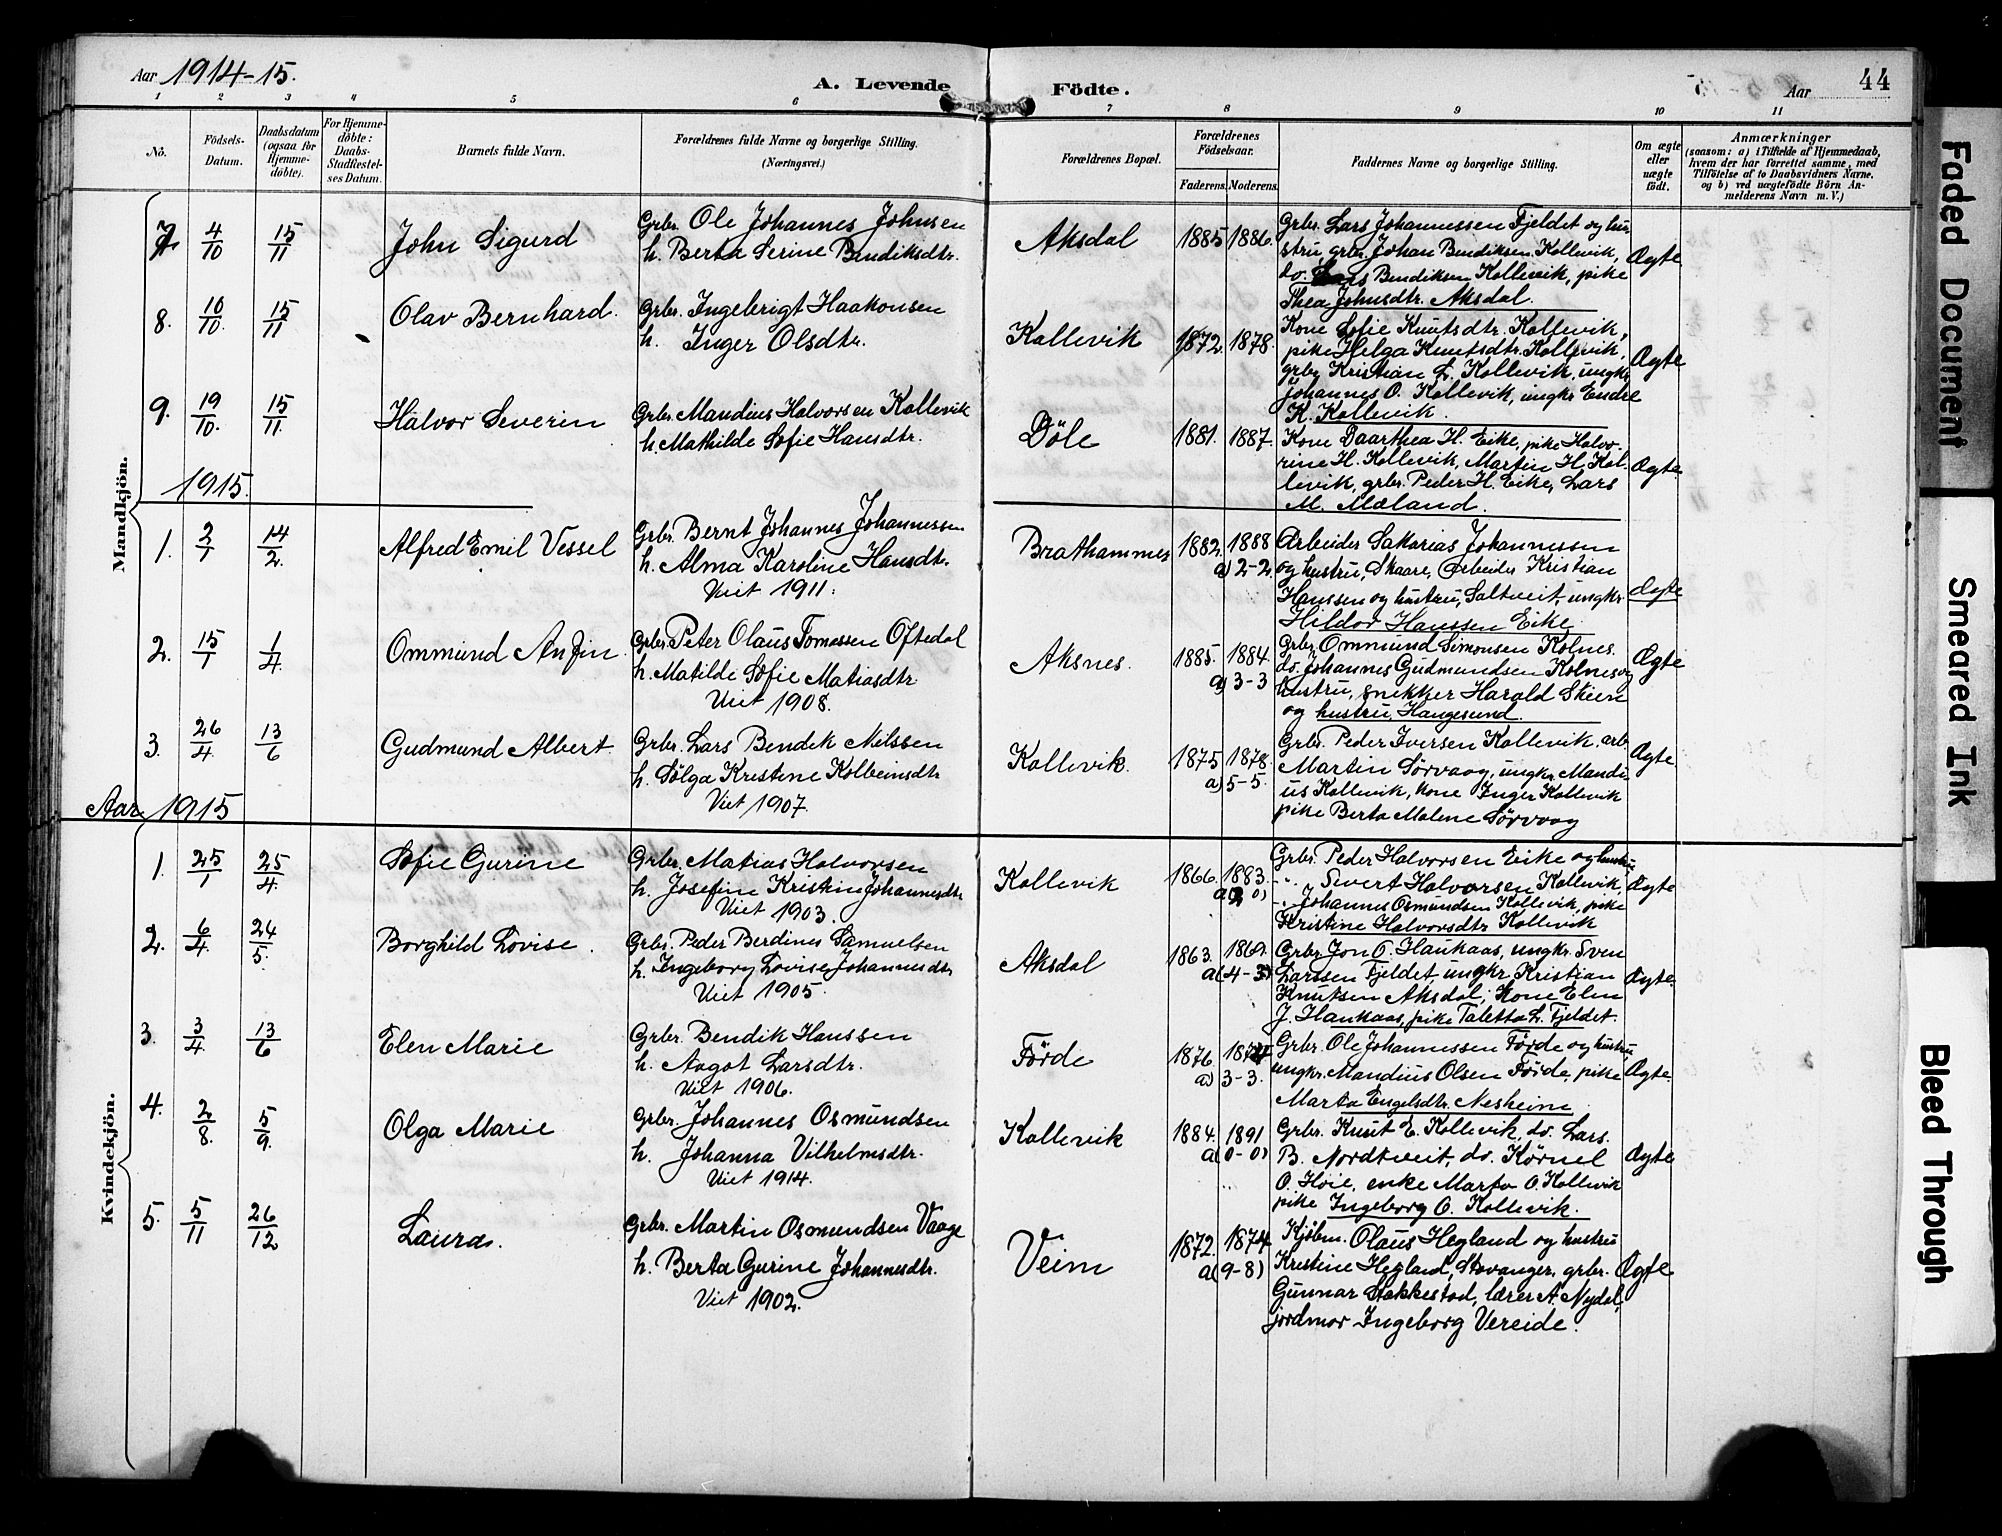 Aar 1914-15.
A. Levende Födte.
Aar 44
1 2 3 4 5 6 7 8 9 10 11
No.
Födsels-Datum.
Daabsdatum (ogsaa for Hjemme-döbte).
For Hjemme-döbte: Daabs-Stadfæstel-ses Datum.
Barnets fulde Navn.
Forældrenes fulde Navne og borgerlige Stilling.
(Næringsvei.)
Forældrenes Bopæl.
Forældrenes Födselsaar.
Faderens. Moderens.
Faddernes Navne og borgerlige Stilling.
Om ægte eller uægte födt.
Anmærkninger
(saasom: a) i Tilfælde af Hjemmedaab, hvem der har forrettet samme, med Tilföielse af to Daabsvidners Navne, og b) ved uægtefödte Börn An-melderens Navn m. V.)
Mandkjön.
7. 4/10 15/11 John Sigurd
Grbr. Ole Johannes Johnsen
h. Berta Serine Bendiksdtr.
Aksdal 1885 1886.
Grbr. Lars Johannessen Fjeldet og hu-
stru, grbr. Johan Bendiksen Kollevik,
do. Lars Bendiksen Kollevik, pike
Thea Johnsdtr. Aksdal.
Ægte
8. 10/10. 15/11 Olav Bernhard.
Grbr. Ingebrigt Haakonsen
h. Inger Olsdtr.
Kollevik 1872 1878.
Kone Sofie Knutsdtr. Kollevik,
pike Helga Knutsdtr. Kollevik,
grbr. Kristian L. Kollevik, ungkr.
Johannes O. Kollevik, ungkr. Endre
K. Kollevik.
Ægte
9. 19/10. 15/11. Halvor Severin
Grbr. Mandius Halvorsen Kollevik
h. Mathilde Sofie Hansdtr.
Döle 1881. 1887.
Kone Daarthea H. Eike, pike Halvo-
rine H. Kollevik, Martin H. Kol-
levik, grbr. Peder H. Eike, Lars
M. Mæland.
Ægte
1915.
1. 2/1 14/2. Alfred Emil Vessel
Grbr. Bernt Johannes Johannessen
h. Alma Karoline Hansdtr.
Viet 1911.
Brathammer 1882. 1888
a) 2-2.
Arbeider Sakarias Johannessen
og hustru, Skaare, Arbeider Kristian
Hanssen og hustru, Saltveit, ungkr.
Hildor Hanssen Eike
Ægte
2. 15/1 1/4. Ommund Anfin.
Grbr. Peter Olaus Tomassen Oftedal
h. Matilde Sofie Matiasdtr.
Viet 1908.
Aksnes. 1885. 1884.
a) 3-3
Grbr. Ommund Simonsen Kolnes.
do. Johannes Gudmundsen Kolnes og
hustru, snekker Harald Skeen
og hustru, Haugesund.
Ægte
3. 26/4 13/6 Gudmund Albert.
Grbr. Lars Bendik Nilssen
h. Sölga Kristine Kolbeinsdtr
Viet 1907.
Kollevik. 1875 1878.
a) 5-5.
Grbr. Peder Iversen Kollevik, arb.
Martin Sörvaag, ungkr. Mandi-
us Kollevik, kone Inger Kollevik
pike Berta Malene Sörvaag
Ægte.
Aar 1915
Kvindekjön.
1. 25/1 25/4. Sofie Gurine
Grbr. Matias Halvorsen
h. Josefine Kristine Johannesdtr
Viet 1903.
Kollevik 1866. 1883.
Grbr. Peder Halvorsen Eike og hustru,
-"- Sivert Halvorsen Kollevik,
-"- Johannes Osmundsen Kollevik, pike
Kristine Halvorsdtr Kollevik
Ægte
2. 6/4 24/5. Borghild Lovise.
Grbr. Peder Berdines Samuelsen
h. Ingeborg Lovise Johannesdtr.
Viet 1905.
Aksdal 1863. 1869.
a(4-3)
Grbr. Jon O. Haukaas, ungkr. Sven
Larssen Fjeldet, ungkr. Kristian
Knutsen Aksdal, Kone Elen
J. Haukaas, pike Taletta L. Fjeldet.
Ægte.
3. 3/4 13/6 Elen Marie
Grbr. Bendik Hanssen
h. Aagot Larsdtr.
Viet 1906.
Förde 1876.
a) 3-3.
Grbr. Ole Johannessen Förde og hustru,
ungkr. Mandius Olsen Förde, pike
Marta Engelsdtr. Nesheim
Ægte.
4. 2/8 5/9. Olga Marie
Grbr. Johannes Osmundsen
h. Johanna Vilhelmsdtr.
Viet 1914.
Kollevik 1884. 1891
a(0-0)
Grbr. Knut E. Kollevik, do. Lars.
B. Nordtveit, do. Körnel
O. Höie, enke Marta O. Kollevik
pike Ingeborg O. Kollevik.
Ægte
5. 5/11 26/12 Laura.
Grbr. Martin Osmundsen Vaage
h. Berta Gurine Johannesdtr.
Viet 1902.
Veim 1872. 1874
a(9-8)
Kjöbm. Olaus Hegland og hustru
Kristine Hegland, Stavanger, grbr.
Gunnar Stakkestad, lærer A. Nydal,
jordmor Ingeborg Vereide.
Ægte
Faded Document
Smeared Ink
Bleed Through